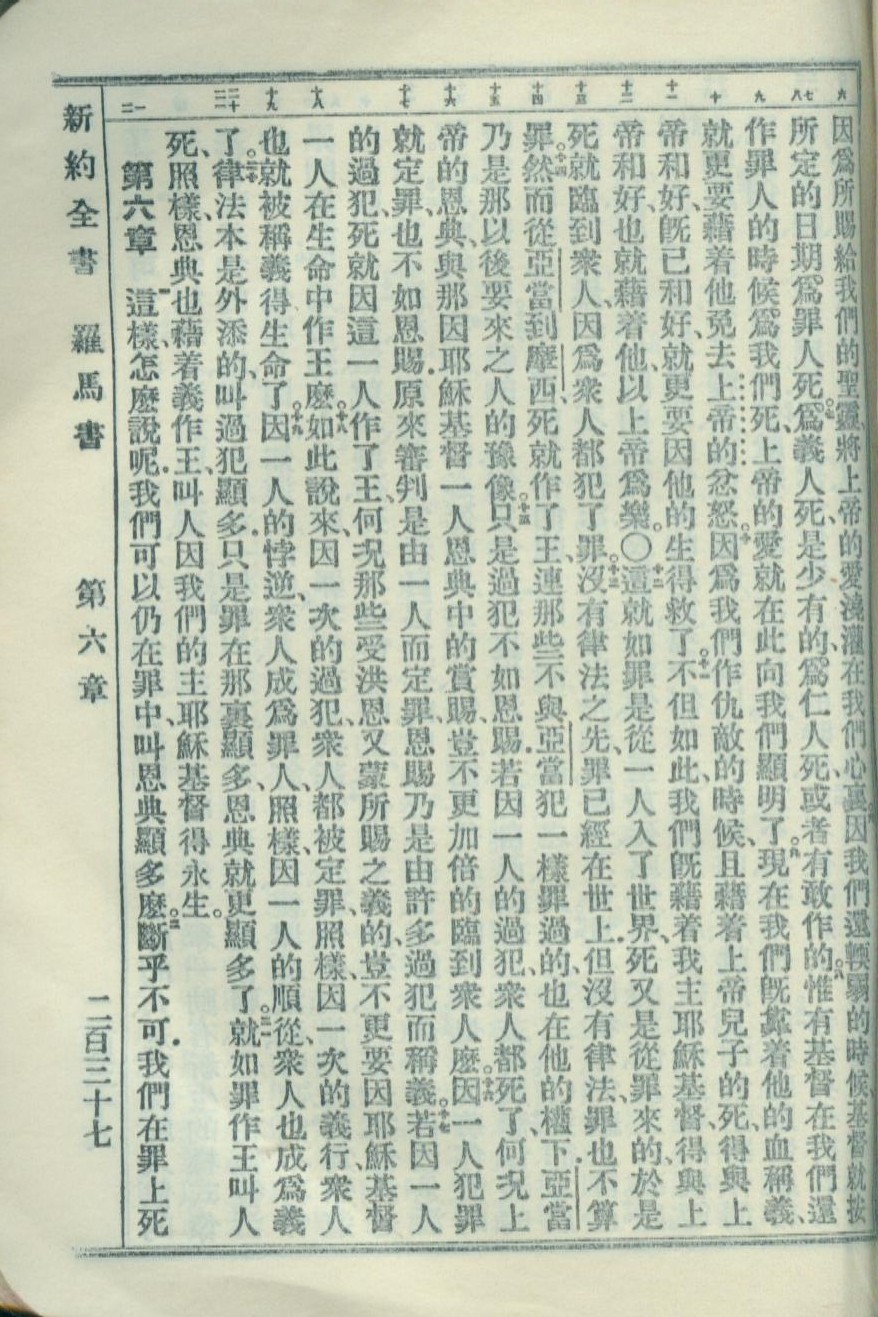 六 七八 九 十 十一 十二 十三 十四 十五 十六 十七 十八 十九 二十 二一 一二
因爲所賜給我們的聖靈、將上帝的愛澆灌在我們心裏。六因我們還輭弱的時候、基督就按
所定的日期、爲罪人死。七爲義人死、是少有的、爲仁人死、或者有敢作的。八惟有基督在我們還
作罪人的時候、爲我們死、上帝的愛就在此向我們顯明了。九現在我們旣靠着他的血稱義、
就更要藉着他免去上帝的忿怒。十因爲我們作仇敵的時候、且藉着上帝兒子的死、得與上
帝和好、旣已和好、就更要因他的生得救了。十一不但如此、我們旣藉着我主耶穌基督、得與上
帝和好、也就藉着他、以上帝爲樂。〇十二這就如罪是從一人入了世界、死又是從罪來的、於是
死就臨到衆人、因爲衆人都犯了罪。十三沒有律法之先、罪已經在世上、但沒有律法、罪也不算
罪。十四然而從亞當到摩西、死就作了王、連那些不與亞當犯一樣罪過的、也在他的權下、亞當
乃是那以後要來之人的豫像。十五只是過犯不如恩賜、若因一人的過犯、衆人都死了、何况上
帝的恩典、與那因耶穌基督一人恩典中的賞賜、豈不更加倍的臨到衆人麼。十六因一人犯罪
就定罪、也不如恩賜、原來審判是由一人而定罪、恩賜乃是由許多過犯而稱義。十七若因一人
的過犯、死就因這一人作了王、何况那些受洪恩又蒙所賜之義的、豈不更要因耶穌基督
一人在生命中作王麼。十八如此說來、因一次的過犯、衆人都被定罪、照樣、因一次的義行、衆人
也就被稱義得生命了。十九因一人的悖逆、衆人成爲罪人、照樣、因一人的順從、衆人也成爲義
了。二十律法本是外添的、叫過犯顯多、只是罪在那裏顯多、恩典就更顯多了。二一就如罪作王叫人
死、照樣、恩典也藉着義作王、叫人因我們的主耶穌基督得永生。
第六章 一這樣、怎麼說呢、我們可以仍在罪中、叫恩典顯多麼。二斷乎不可、我們在罪上死
新約全書 羅馬書 第六章 二百三十七